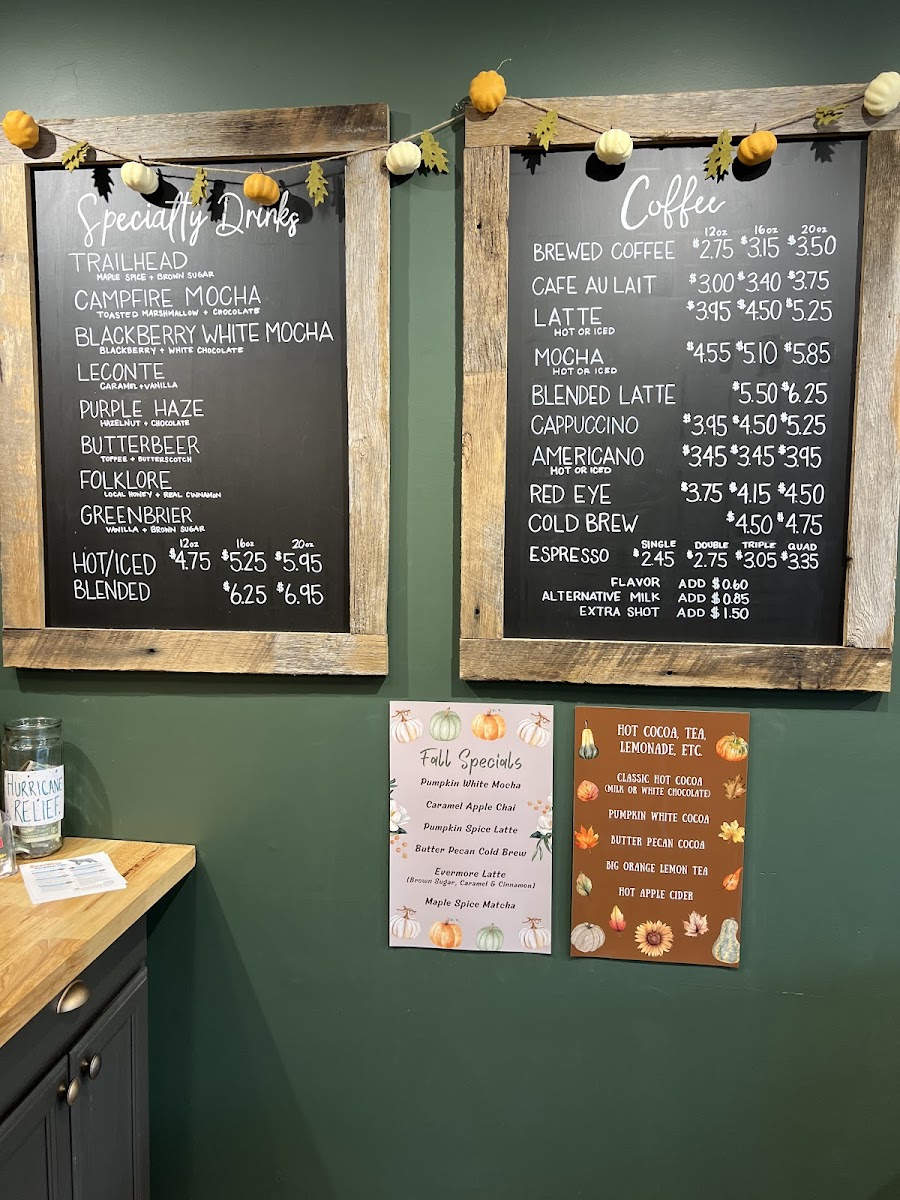 Specialty Drinks
TRAILHEAD
MAPLE SPICE + BROWN SUGAR
CAMPFIRE MOCHA
TOASTED MARSHMALLOW + CHOCOLATE
BLACKBERRY WHITE MOCHA
BLACKBERRY + WHITE CHOCOLATE
LECONTE
CARAMEL + VANILLA
PURPLE HAZE
HAZELNUT + CHOCOLATE
BUTTERBEER
TOFFEE + BUTTERSCOTCH
FOLKLORE
LOCAL HONEY + REAL CINNAMON
GREENBRIER
VANILLA + BROWN SUGAR
12oz 16oz 20oz
HOT/ICED $4.75 $5.25 $5.95
BLENDED $6.25 $6.95
Coffee
12oz 16oz 20oz
BREWED COFFEE $2.75 $3.15 $3.50
CAFE AU LAIT $3.00 $3.40 $3.75
LATTE $3.95 $4.50 $5.25
HOT OR ICED
MOCHA $4.55 $5.10 $5.85
HOT OR ICED
BLENDED LATTE $5.50 $6.25
CAPPUCCINO $3.95 $4.50 $5.25
AMERICANO $3.45 $3.45 $3.95
HOT OR ICED
RED EYE $3.75 $4.15 $4.50
COLD BREW $4.50 $4.75
SINGLE DOUBLE TRIPLE QUAD
ESPRESSO $2.45 $2.75 $3.05 $3.35
FLAVOR ADD $0.60
ALTERNATIVE MILK ADD $0.85
EXTRA SHOT ADD $1.50
HURRICANE
RELIEF
Fall Specials
Pumpkin White Mocha
Caramel Apple Chai
Pumpkin Spice Latte
Butter Pecan Cold Brew
Evermore Latte
(Brown Sugar, Caramel & Cinnamon)
Maple Spice Matcha
HOT COCOA, TEA,
LEMONADE, ETC.
CLASSIC HOT COCOA
(MILK OR WHITE CHOCOLATE)
PUMPKIN WHITE COCOA
BUTTER PECAN COCOA
BIG ORANGE LEMON TEA
HOT APPLE CIDER